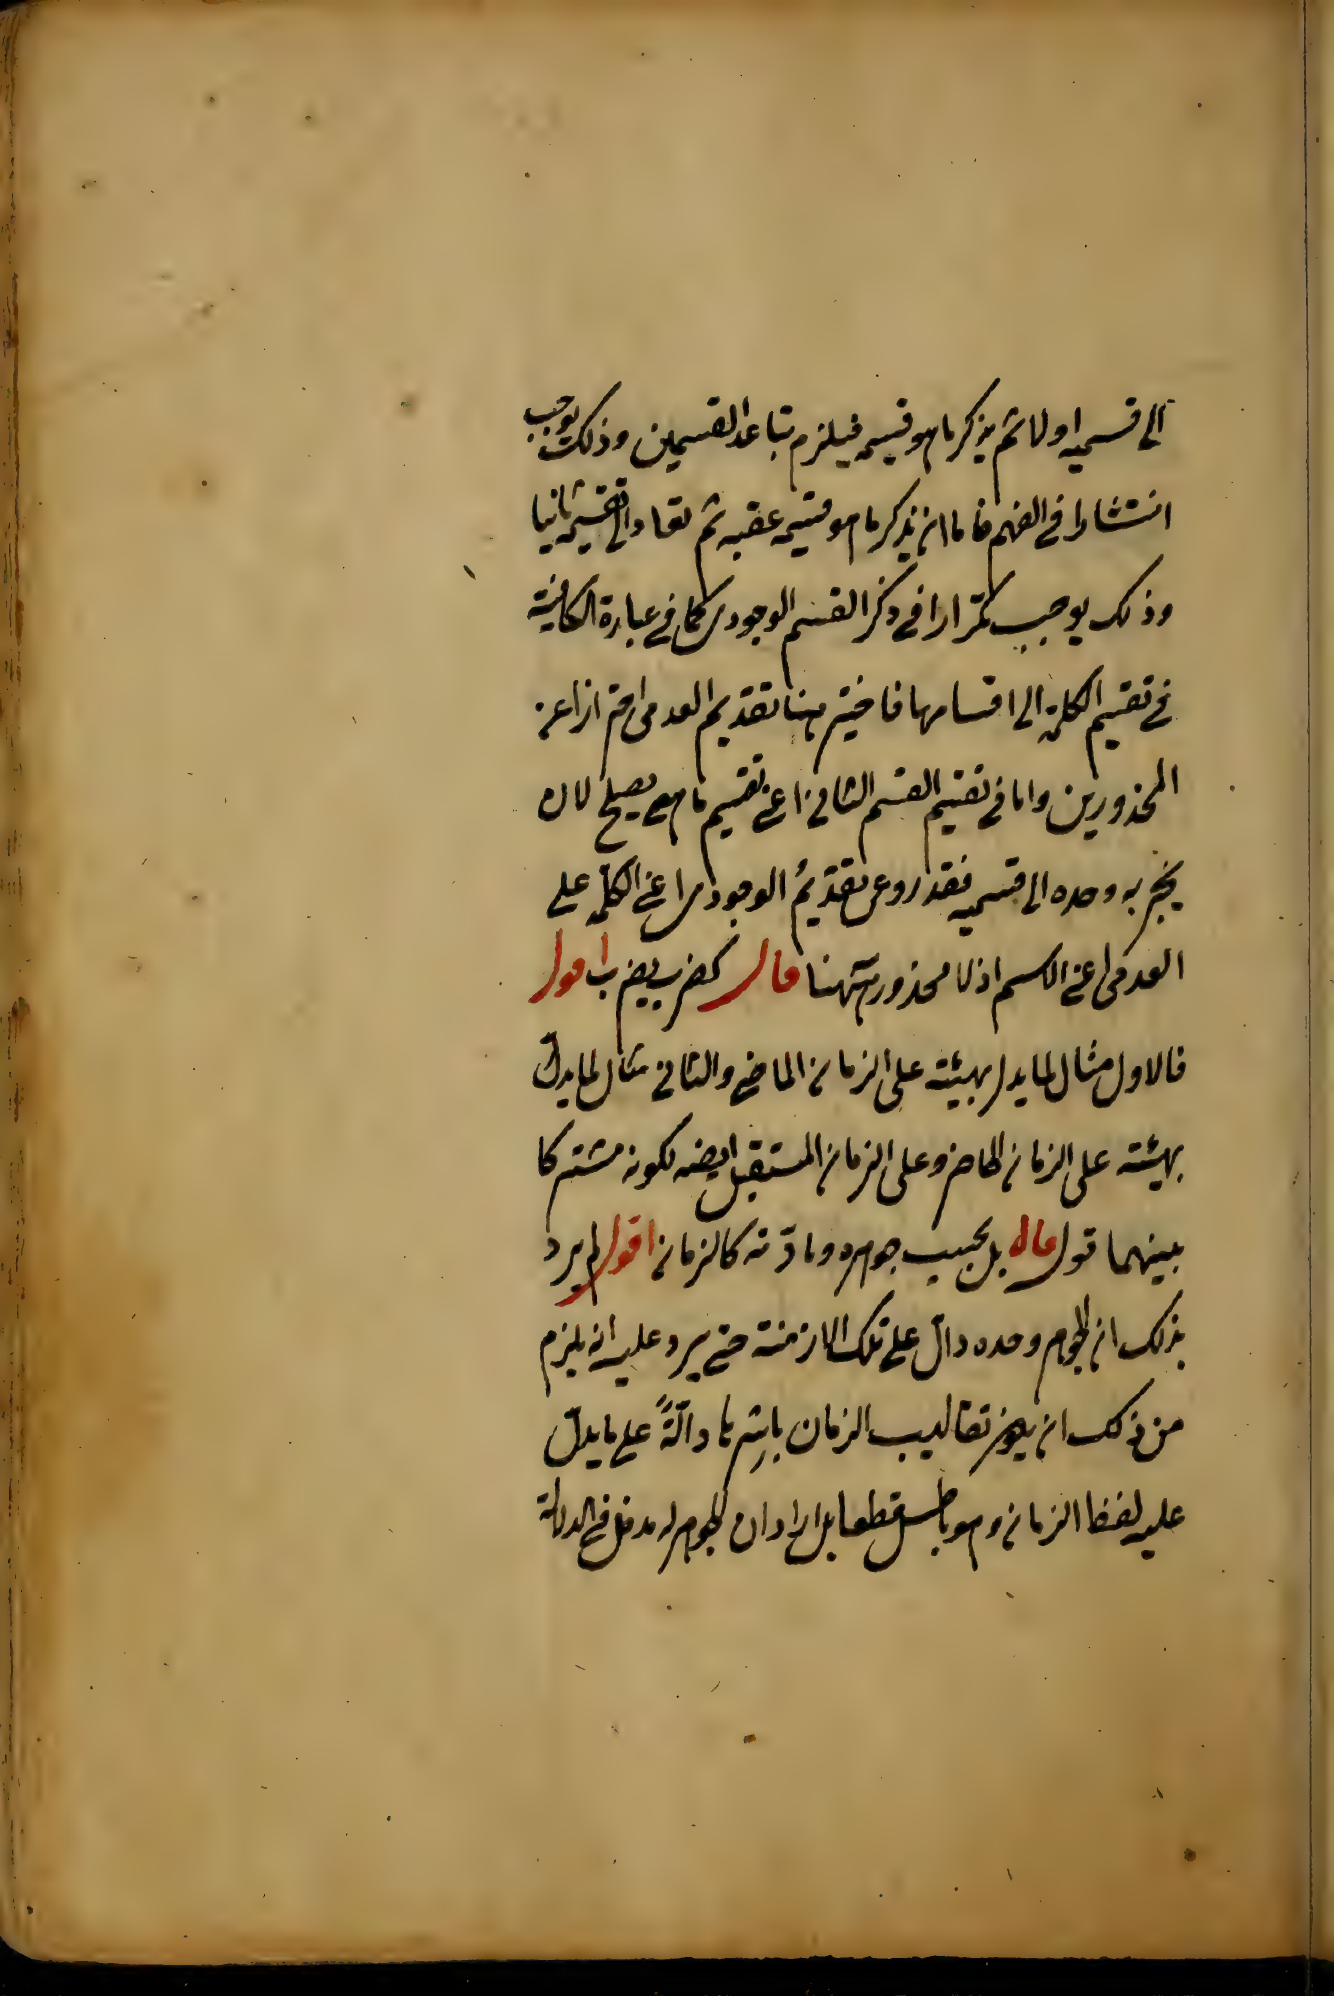 الى قسميه اولا ثم يذكر ما هو قسيمه فيلزم تباعد القسمين وذلك يوجب
انتشارا في الفهم فاما ان يذكر ما هو قسيمه عقبه ثم يعاد الى تقسيمه ثانيا
وذلك يوجب تكرارا في ذكر القسم الوجودى كما في عبارة الكافية
في تقسيم الكلمة الى اقسامها فاختير ههنا تقديم العدمى احترازا عن
المحذورين واما في تقسيم القسم الثاني اعني تقسيم ما هو يصلح لان
يخبر به وحده الى قسميه فقد روعى تقديم الوجودى اعني الكلمة على
العدمى اعني الاسم اذ لا محذور ههنا قال كضرب يضرب اقول
فالاول مثال لما يدل بهيئته على الزمان الماضي والثاني مثال لما يدل
بهيئته على الزمان الحاضر وعلى الزمان المستقبل ايضا لكونه مشتركا
بينهما قول قال بل بحسب جوهره ومادته كالزمان اقول لم يرد
بذلك ان الجوهر وحده دال على تلك الازمنة حتى يرد عليه انه يلزم
من ذلك ان يكون تقاليب الزمان باسرها دالةً على ما يدل
عليه لفظ الزمان وهو باطل قطعا بل اراد ان الجوهر له مدخل في الدلالة